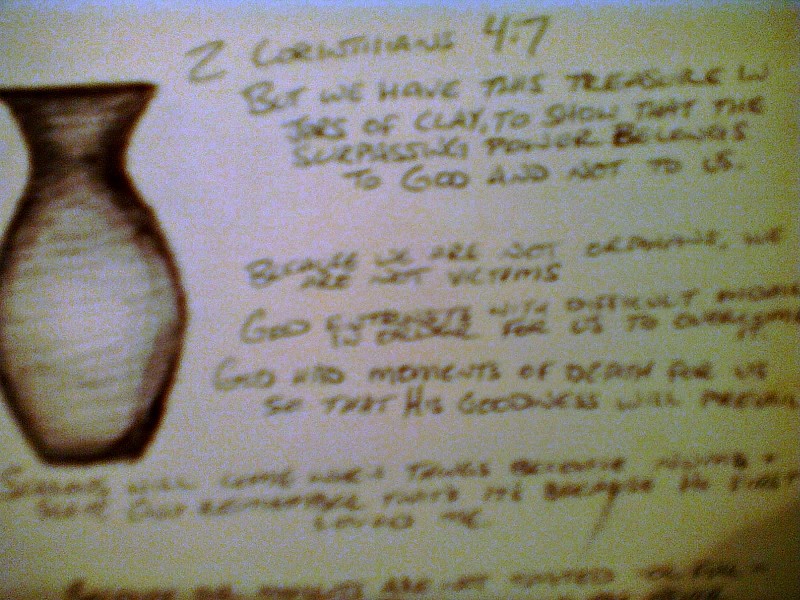 2 CORINTHIANS 4:7
BUT WE HAVE THIS TREASURE IN
JARS OF CLAY, TO SHOW THAT THE
SURPASSING POWER BELONGS
TO GOD AND NOT TO US.
BECAUSE WE ARE NOT ORPHANS, WE
ARE NOT VICTIMS
GOD ENTRUSTS WITH DIFFICULT
IN ORDER FOR US TO OVERCOME
IT.
GOD HAD MOMENTS OF DEATH FOR US
SO THAT HIS GOODNESS WILL PREVAIL
SEASONS WILL COME THINGS BECOME
REMEMBER THAT IT'S BECAUSE HE FIRST
LOVED ME
BECAUSE ARE NOT